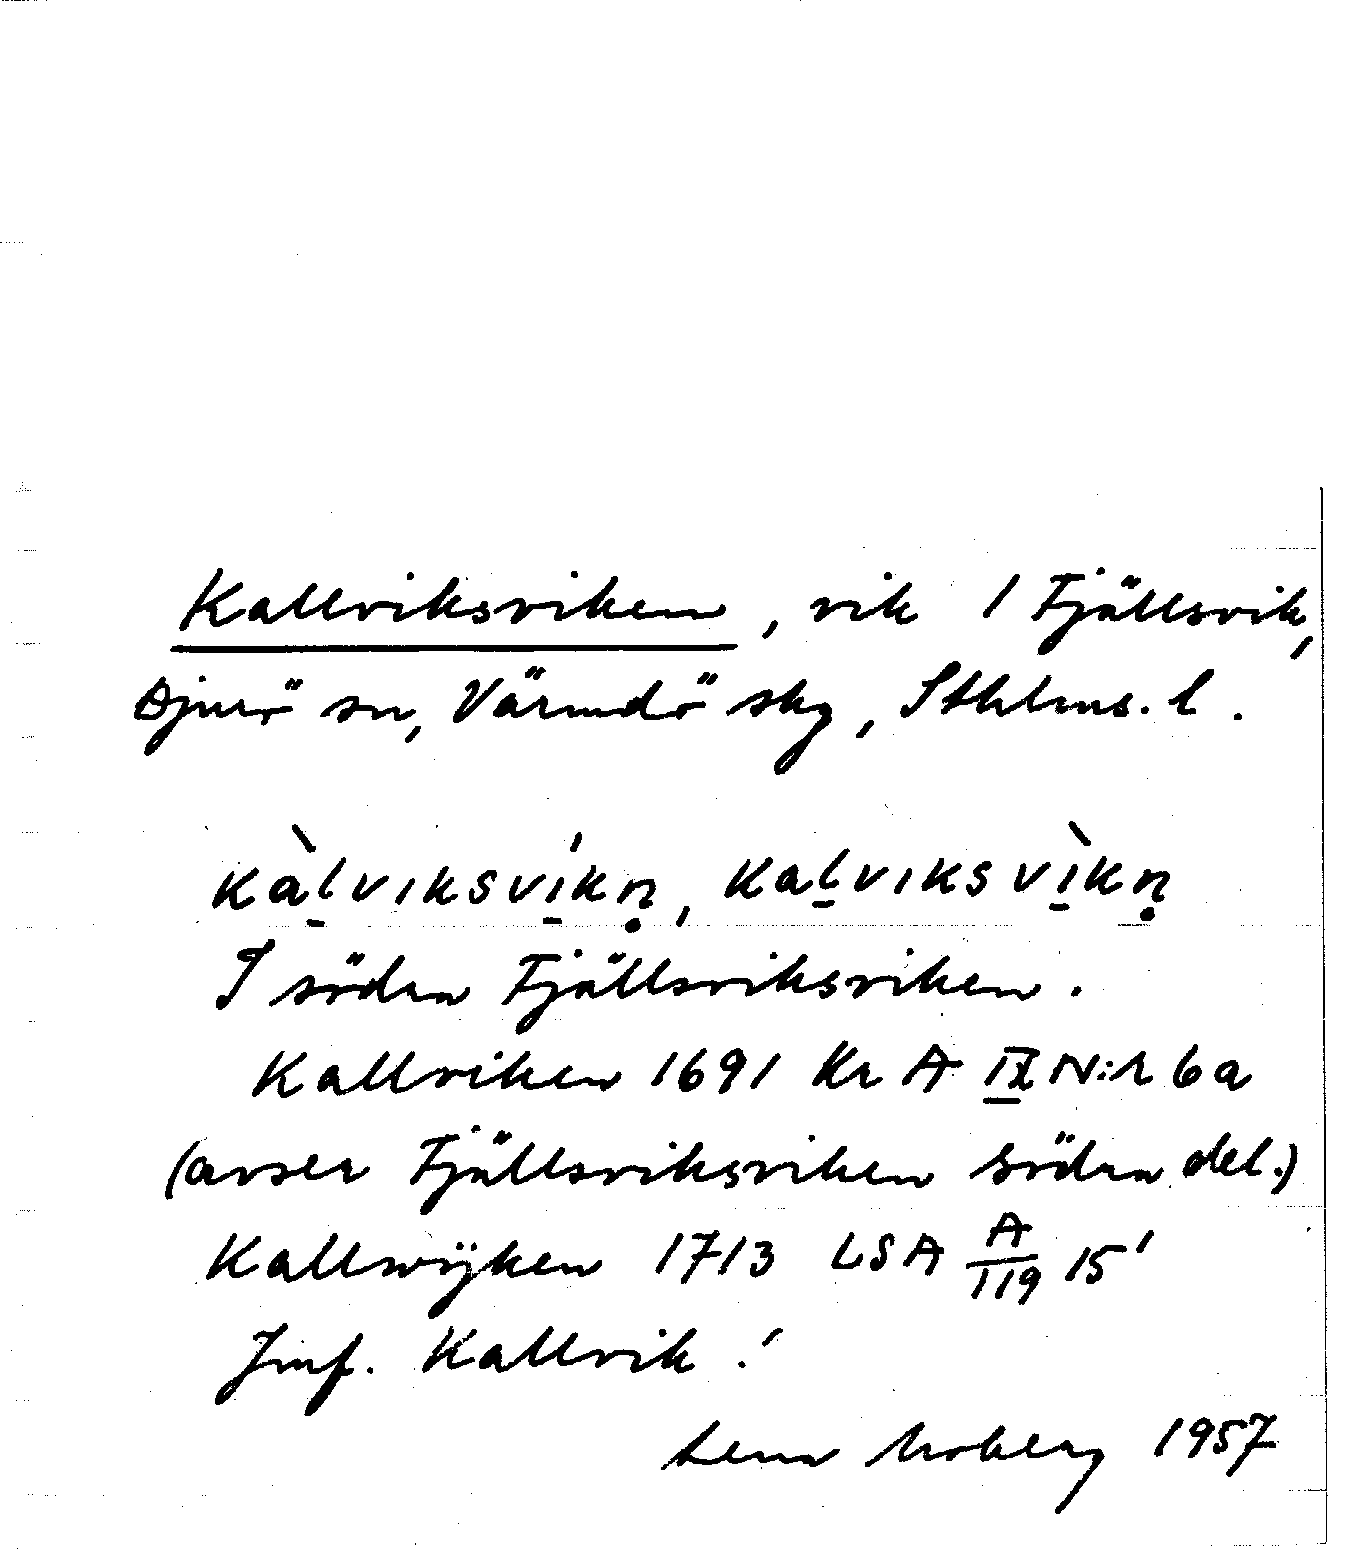 Kallviksviken, vik / Fjällsvik,
Djurö sn, Värmdö skg, Sthlms. l.
kàl̠viksví̠kṇ, kal̠viksvì̠kṇ
I södra Fjällsviksviken.
Kallviken 1691 Kr A IX N:r 6a
(avser Fjällsviksviken södra del.)
Kallwijken 1713 LSA A/119 15'
Jmf. Kallvik.!
Lena Moberg 1957